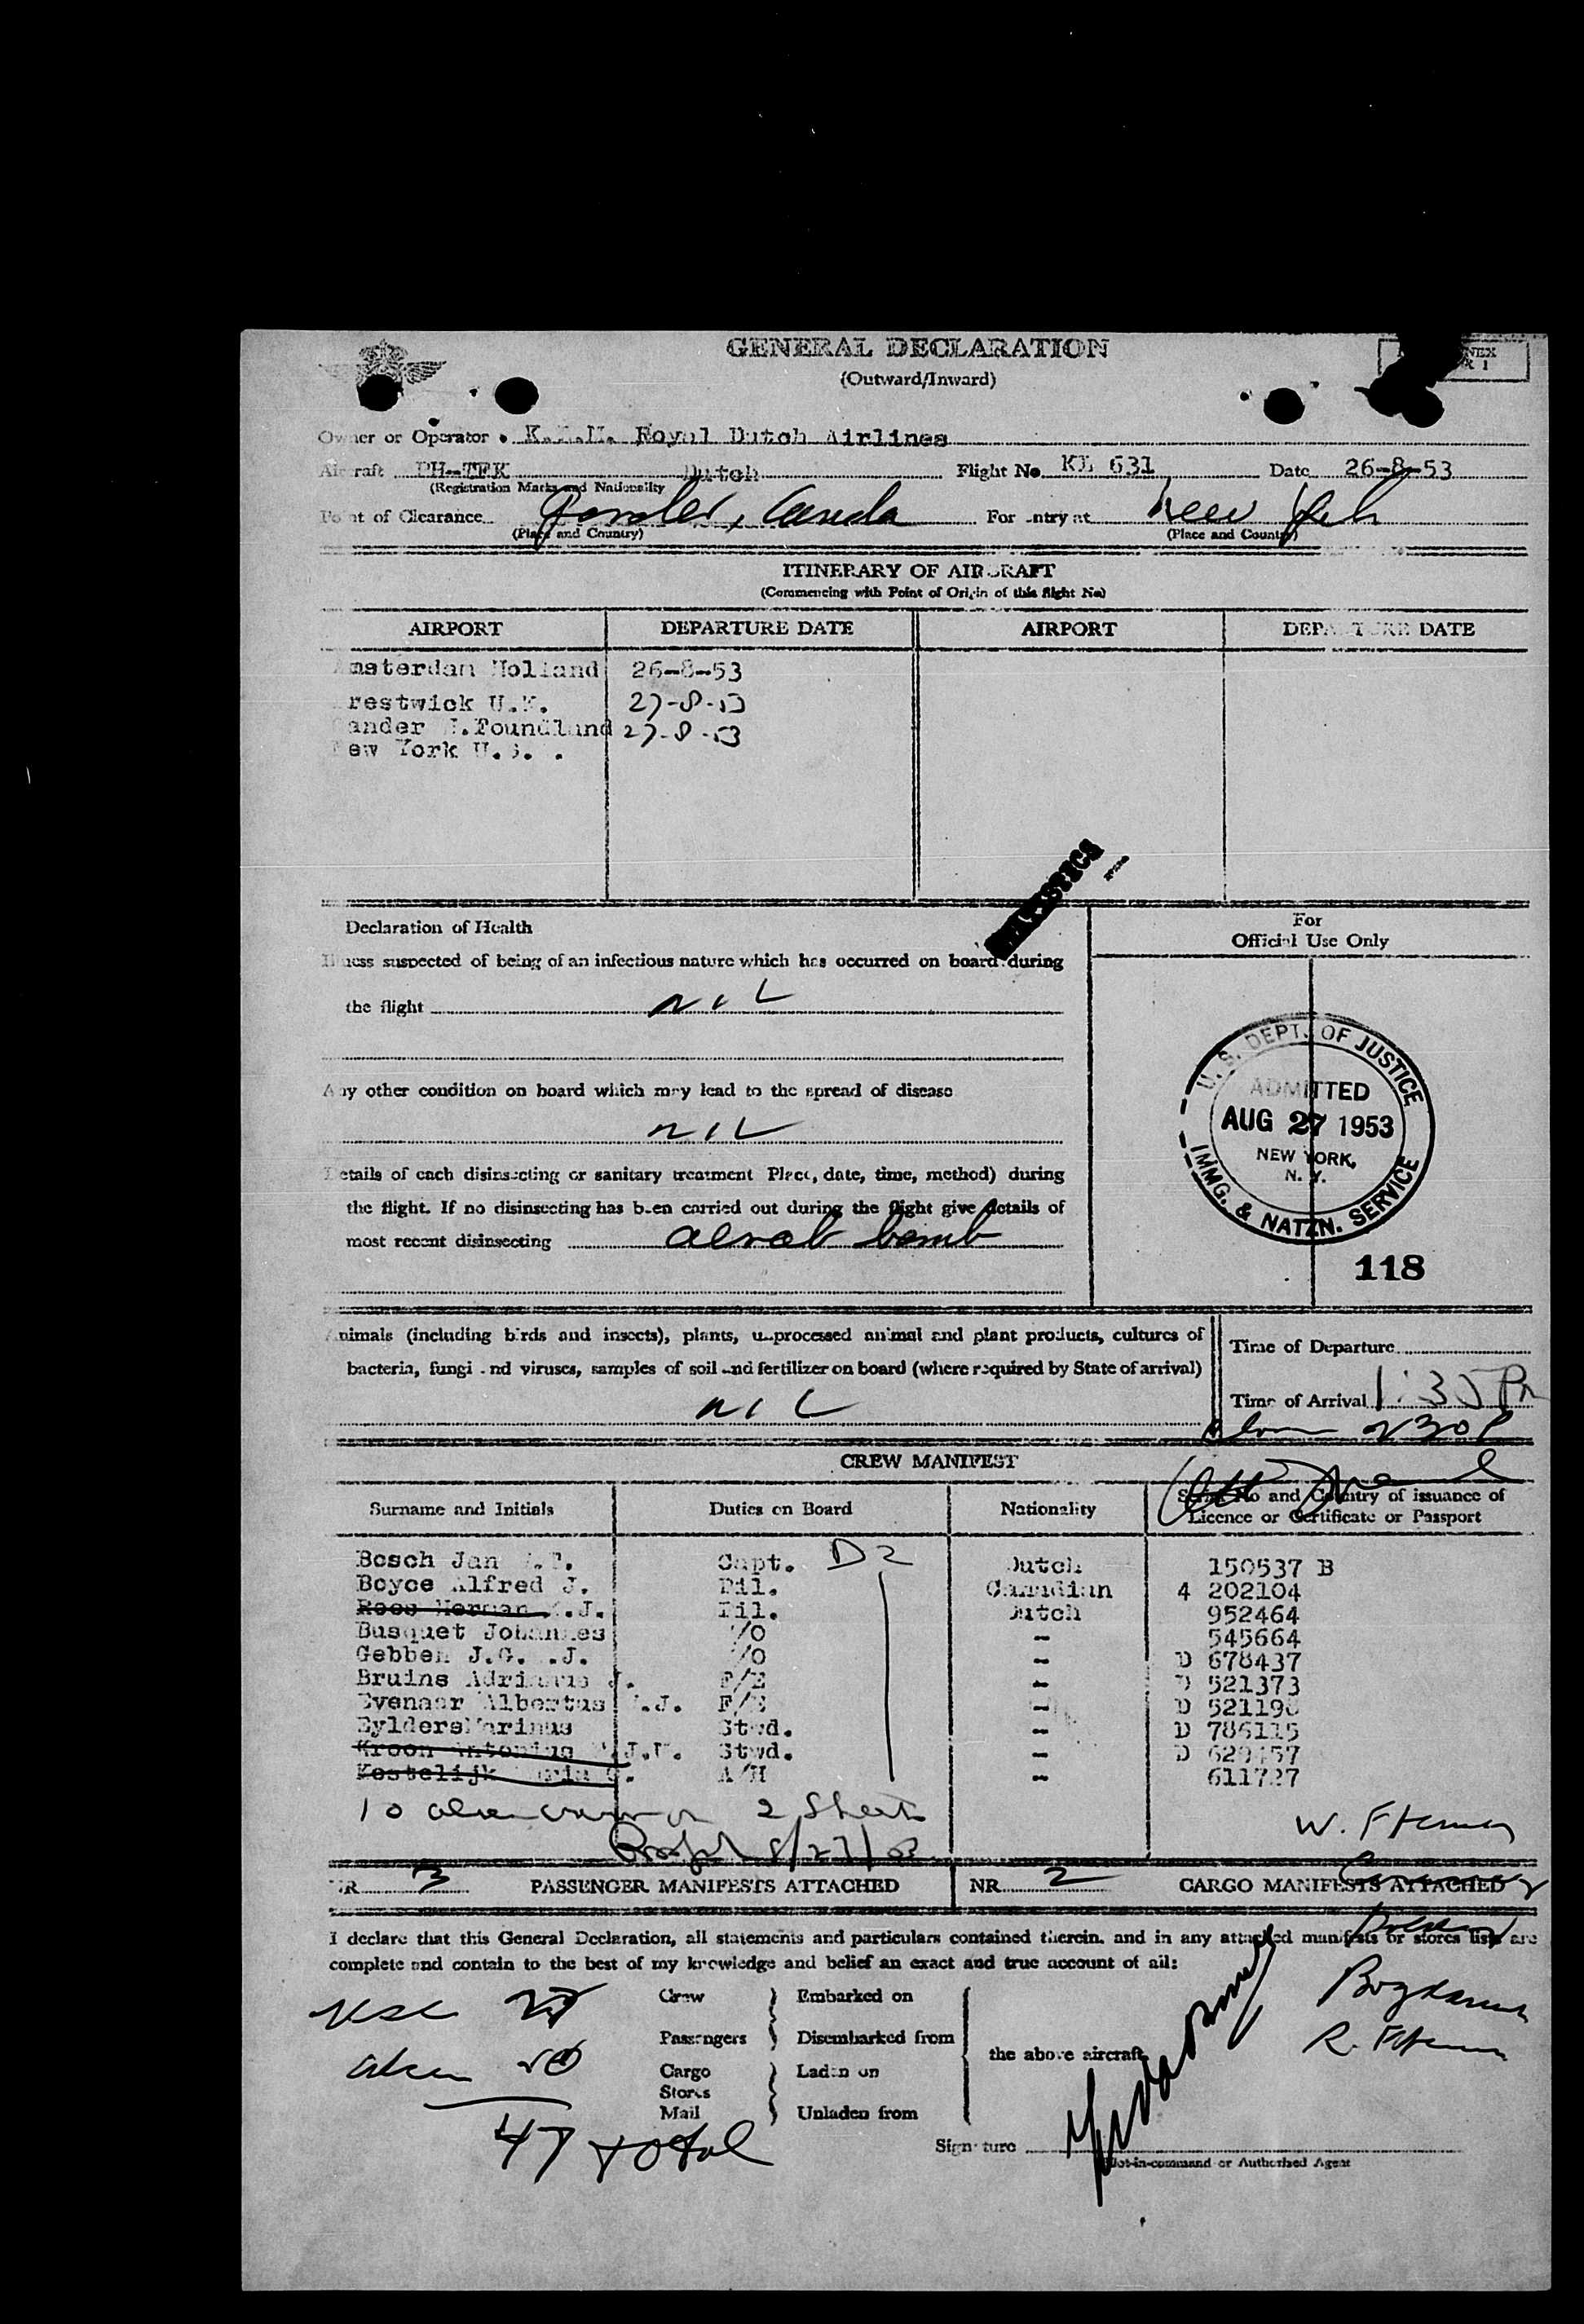 GENERAL DECLARATION
(Outward/Inward)
NEX
R 1
Owner or Operator K.L.M. Royal Dutch Airlines
Aircraft PH-TFK Dutch Flight No. KL 631 Date 26-8-53
(Registration Marks and Nationality
Point of Clearance Gander, Canada For Entry at New York
(Place and Country) (Place and Country)
ITINERARY OF AIRCRAFT
(Commencing with Point of Origin of this flight No.)
AIRPORT DEPARTURE DATE AIRPORT DEPARTURE DATE
Amsterdam Holland 26-8-53
Prestwick U.K. 27-8-53
Gander N.Foundland 27-8-53
New York U.S.A.
STATISTICS
Declaration of Health
Illness suspected of being of an infectious nature which has occurred on board during
the flight NIL
Any other condition on board which may lead to the spread of disease
NIL
Details of each disinsecting or sanitary treatment Place, date, time, method) during
the flight. If no disinsecting has been carried out during the flight give details of
most recent disinsecting bomb
For
Official Use Only
U. S. DEPT. OF JUSTICE
ADMITTED
AUG 27 1953
NEW YORK,
N. Y.
IMMG. & NATZN. SERVICE
118
Animals (including birds and insects), plants, unprocessed animal and plant products, cultures of
bacteria, fungi and viruses, samples of soil and fertilizer on board (where required by State of arrival)
NIL
Time of Departure
Time of Arrival 1:35 PM
230P
CREW MANIFEST
Surname and Initials Duties on Board Nationality Serial No and Country of issuance of
Licence or Certificate or Passport
Bosch Jan Capt. D2 Dutch 150537 B
Boyce Alfred J. Pil. Canadian 4 202104
Roos Herman .J. Pil. Dutch 952464
Busquet Johannes /O - 545664
Gebben J.G. .J. /O - D 678437
Bruins Adrianus J. F/E - D 521373
Evenaar Albertus .J. F/E - D 52119
Eylders Marinus Stwd. - D 786115
Kroon Antonius J. Stwd. - D 57
Kostelijk Maria G. A/H - 611727
10 alien crew on 2 Sheets
8/27/53
W.
NR. 3 PASSENGER MANIFESTS ATTACHED NR. 2 CARGO MANIFESTS ATTACHED
I declare that this General Declaration, all statements and particulars contained therein, and in any attached manifests or stores lists are
complete and contain to the best of my knowledge and belief an exact and true account of all:
USC 27
alien 20
47 total
Crew Embarked on
Passengers Disembarked from
Cargo Laden on
Stores
Mail Unladen from
the above aircraft
R.
Signature
Pilot-in-command or Authorised Agent